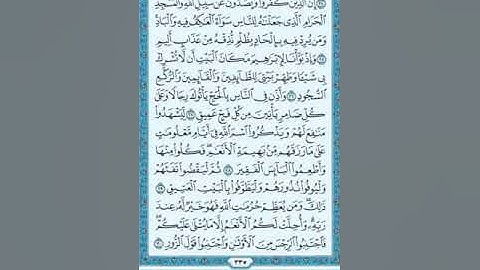 إِنَّ الَّذِينَ كَفَرُوا وَيَصُدُّونَ عَن سَبِيلِ اللَّهِ وَالْمَسْجِدِ
الْحَرَامِ الَّذِي جَعَلْنَاهُ لِلنَّاسِ سَوَاءً الْعَاكِفُ فِيهِ وَالْبَادِ
وَمَن يُرِدْ فِيهِ بِإِلْحَادٍ بِظُلْمٍ نُّذِقْهُ مِنْ عَذَابٍ أَلِيمٍ
۝٢٥ وَإِذْ بَوَّأْنَا لِإِبْرَاهِيمَ مَكَانَ الْبَيْتِ أَن لَّا تُشْرِكْ
بِي شَيْئًا وَطَهِّرْ بَيْتِيَ لِلطَّائِفِينَ وَالْقَائِمِينَ وَالرُّكَّعِ
السُّجُودِ ۝٢٦ وَأَذِّن فِي النَّاسِ بِالْحَجِّ يَأْتُوكَ رِجَالًا وَعَلَىٰ
كُلِّ ضَامِرٍ يَأْتِينَ مِن كُلِّ فَجٍّ عَمِيقٍ ۝٢٧ لِّيَشْهَدُوا
مَنَافِعَ لَهُمْ وَيَذْكُرُوا اسْمَ اللَّهِ فِي أَيَّامٍ مَّعْلُومَاتٍ
عَلَىٰ مَا رَزَقَهُم مِّن بَهِيمَةِ الْأَنْعَامِ فَكُلُوا مِنْهَا
وَأَطْعِمُوا الْبَائِسَ الْفَقِيرَ ۝٢٨ ثُمَّ لْيَقْضُوا تَفَثَهُمْ
وَلْيُوفُوا نُذُورَهُمْ وَلْيَطَّوَّفُوا بِالْبَيْتِ الْعَتِيقِ ۝٢٩
ذَٰلِكَ وَمَن يُعَظِّمْ حُرُمَاتِ اللَّهِ فَهُوَ خَيْرٌ لَّهُ عِندَ
رَبِّهِ وَأُحِلَّتْ لَكُمُ الْأَنْعَامُ إِلَّا مَا يُتْلَىٰ عَلَيْكُمْ
فَاجْتَنِبُوا الرِّجْسَ مِنَ الْأَوْثَانِ وَاجْتَنِبُوا قَوْلَ الزُّورِ ۝٣٠
٣٣٥